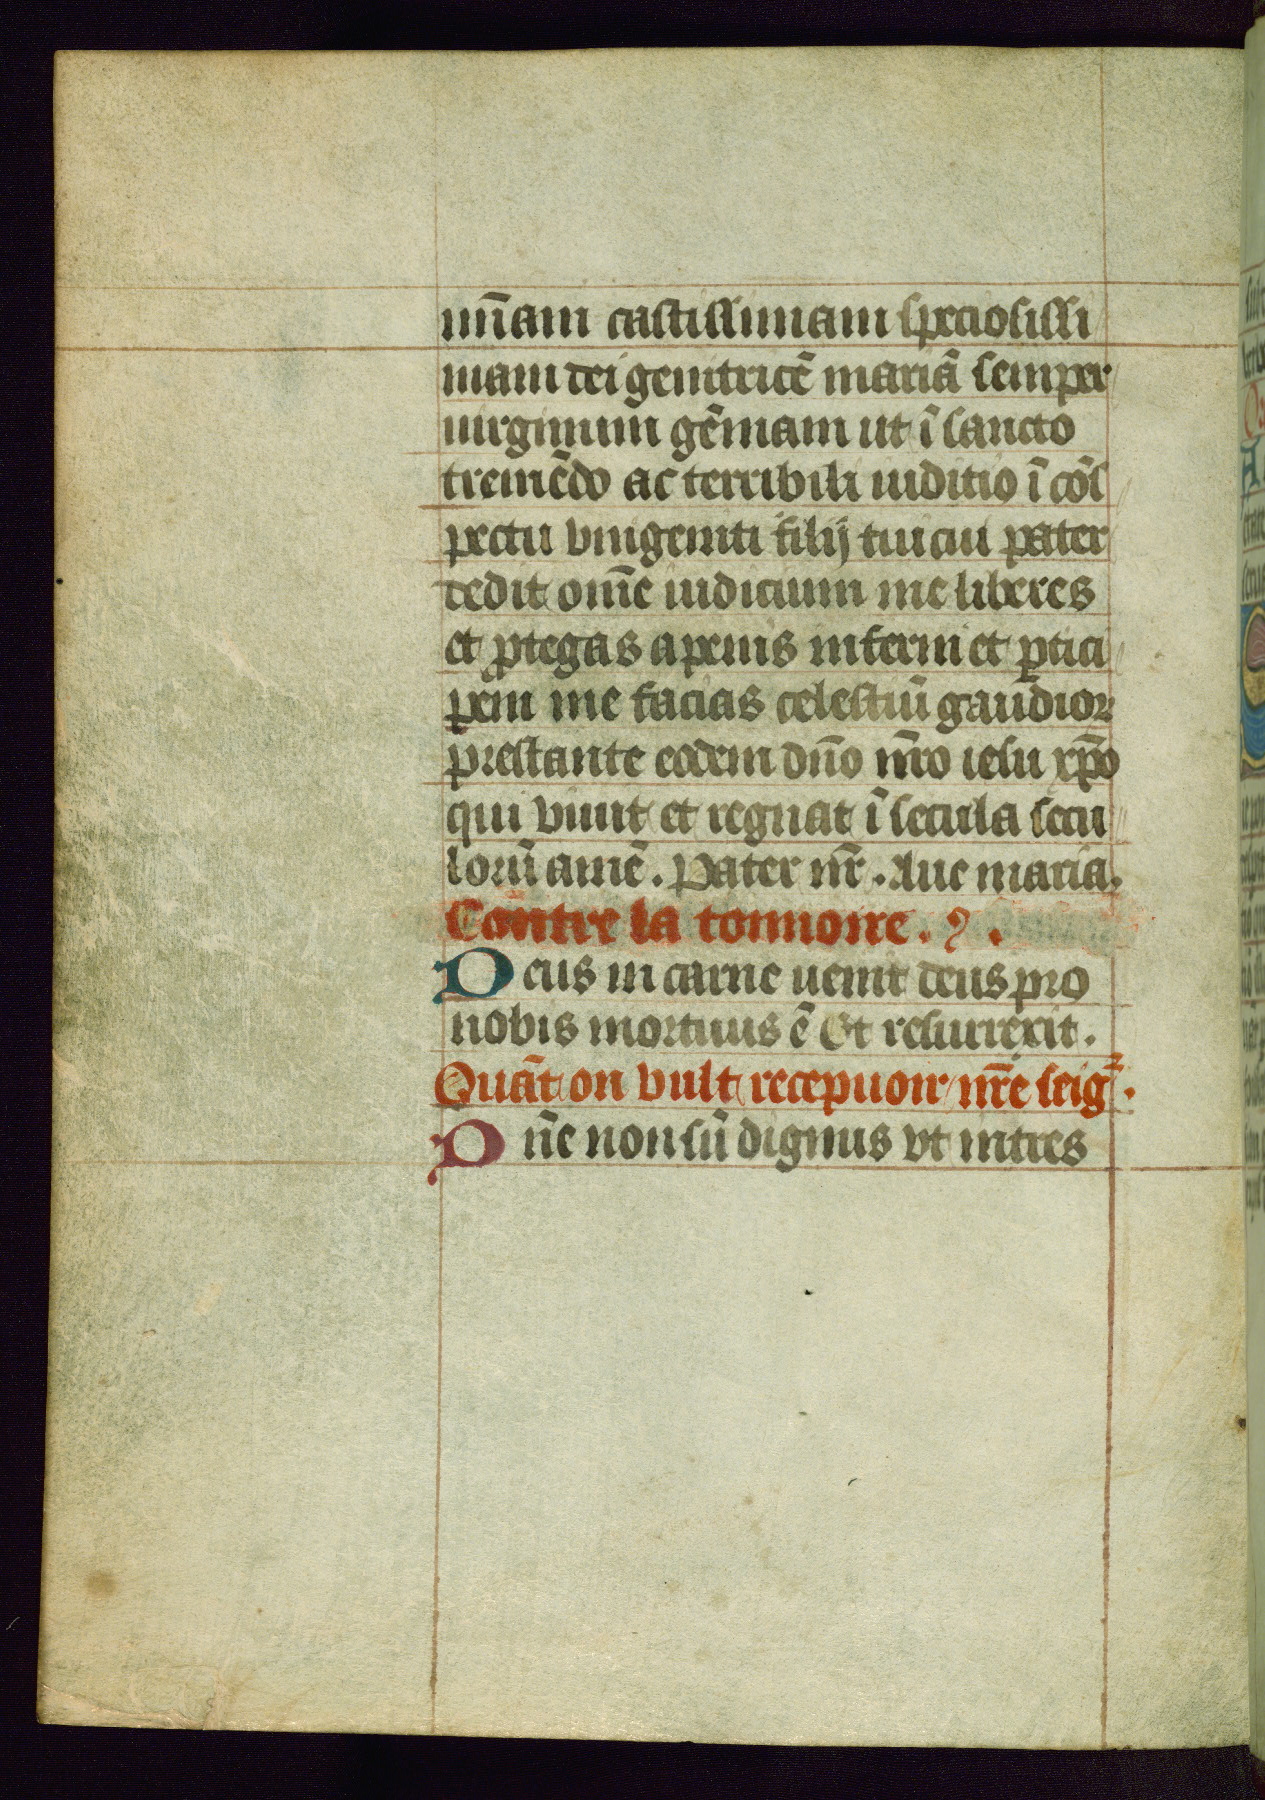 mn̄am castissimam speciosissi
mam dei genitricē mariā semper
uirginum gēmam ut ī sancto
tremēdo ac terribili iuditio ī cōs
pectu vnigeniti filij tui cui pater
dedit om̄e iudicium me liberes
et ꝓtegas a penis inferni et ꝑtici
pem me facias celestiū gaudioꝝ
prestante eodem dn̄o nr̄o iesu xp̄o
qui viuit et regnat ī secula secu
lorū amē. Pater nr̄. Aue maria.
Contre la tonnoire.
Deus in carne uenit deus pro
nobis mortuus ē Et resurrexit.
Quāt on vult recepuoir nr̄e seigᷣ.
Dn̄e non sū dignus vt intres